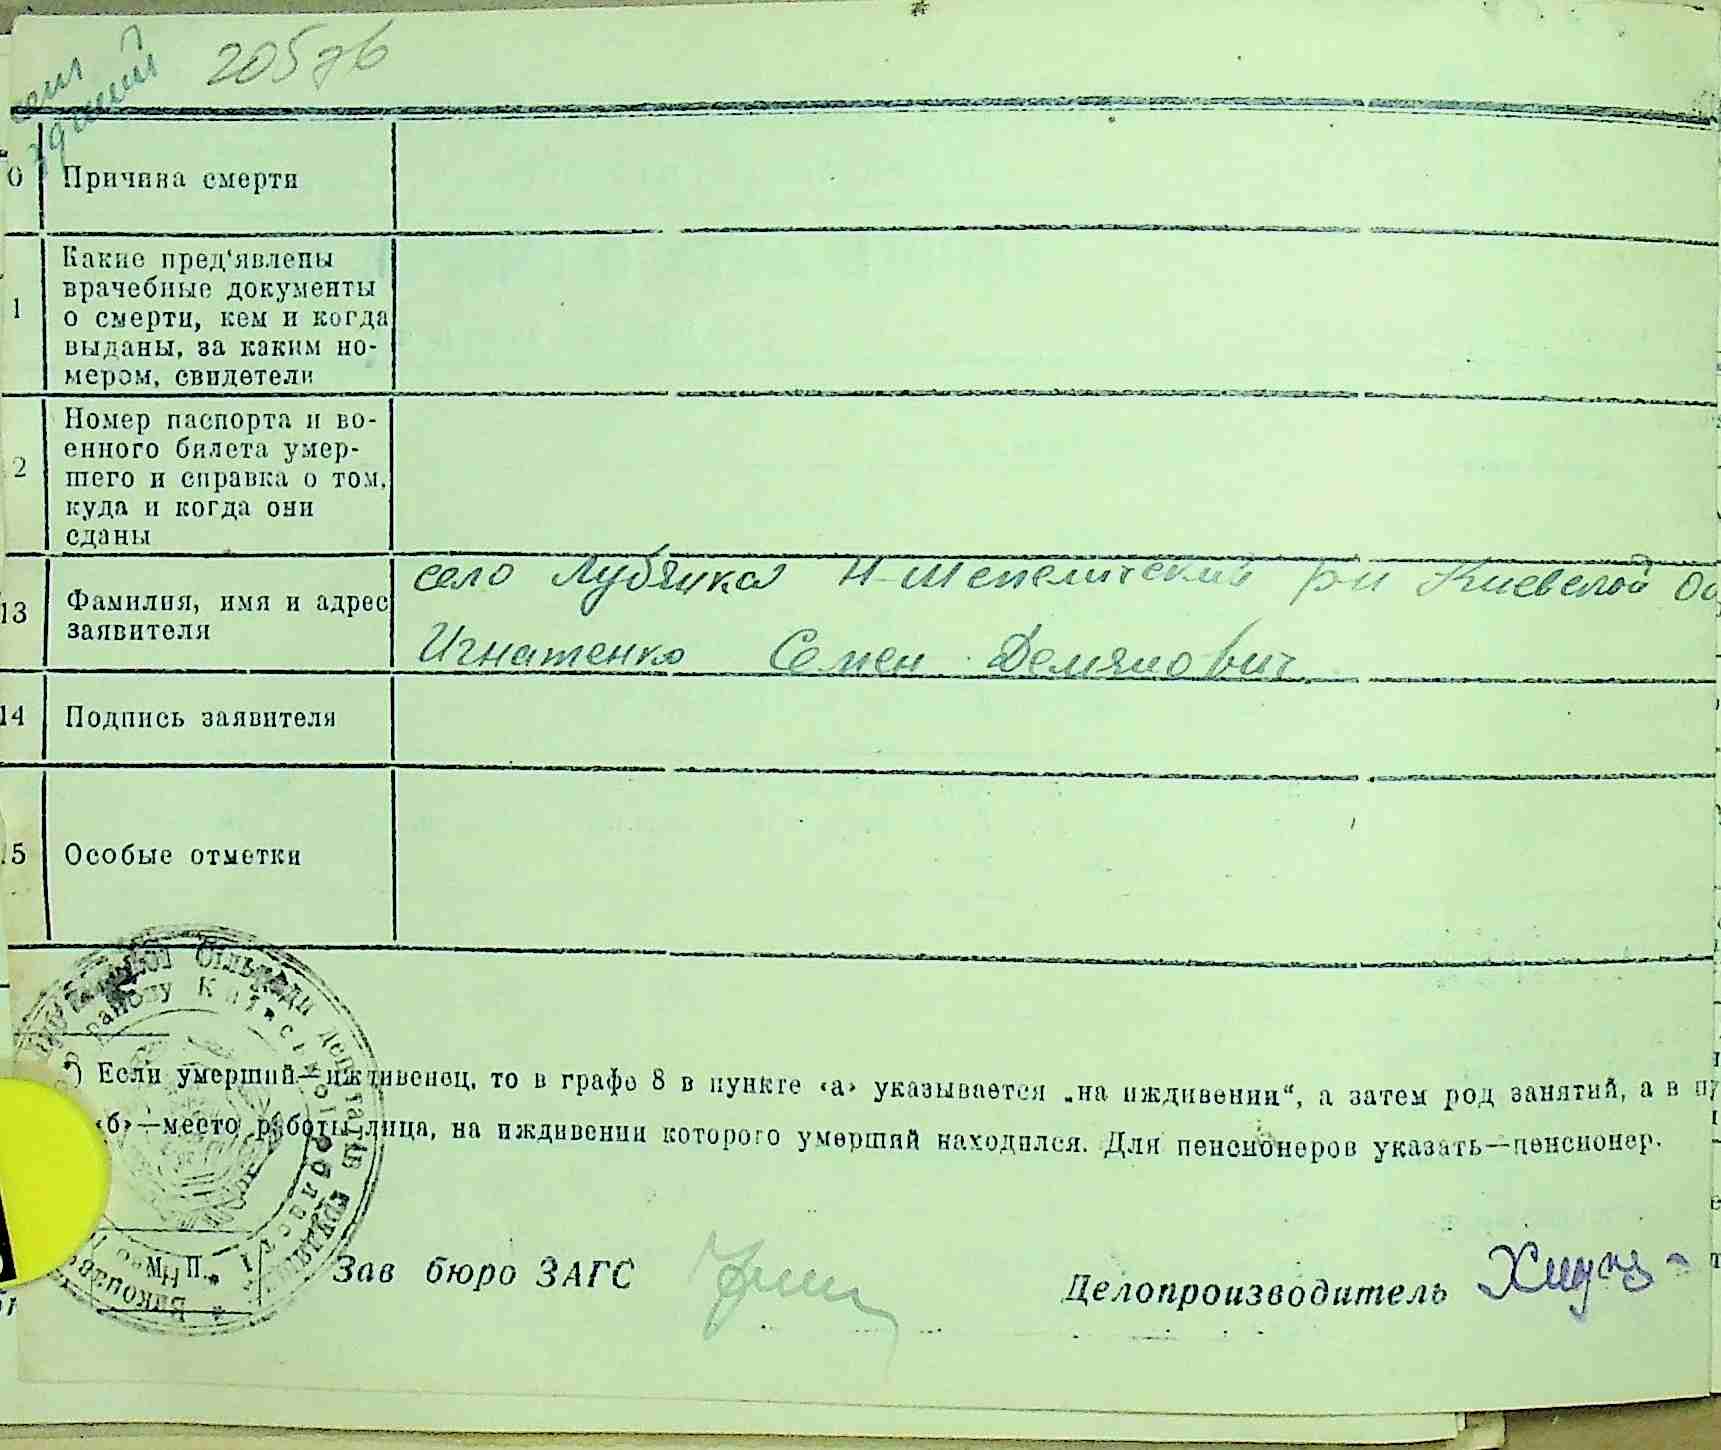 205
0 Причина смерти
1 Какие пред'явлены
врачебные документы
о смерти, кем и когда
выданы, за каким но-
мером, свидетели
2 Номер паспорта и во-
енного билета умер-
шего и справка о том,
куда и когда они
сданы
село Лубянка Н-Шепелитский р-н Киевской Об
13 Фамилия, имя и адрес
заявителя
Игнатенко Семен Демянович
14 Подпись заявителя
5 Особые отметки
районy Київської області
депутатів трудящих
) Если умерший—иждивенец, то в графе 8 в пункте «а» указывается „на иждивении“, а затем род занятий, а в пу
«б»—место работы лица, на иждивении которого умерший находился. Для пенсионеров указать—пенсионер.
М. П.
Зав бюро ЗАГС
Делопроизводитель